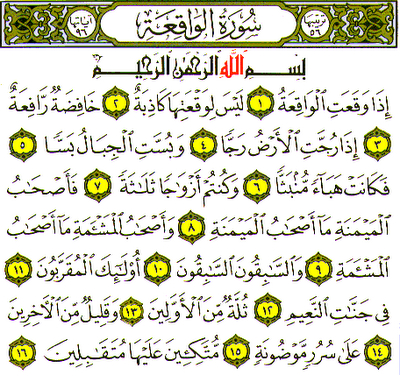 ترتيبها ٥٦ سورة الواقعة آياتها ٩٦
بسم الله الرحمن الرحيم
إِذَا وَقَعَتِ ٱلْوَاقِعَةُ ١ لَيْسَ لِوَقْعَتِهَا كَاذِبَةٌ ٢ خَافِضَةٌ رَّافِعَةٌ
٣ إِذَا رُجَّتِ ٱلْأَرْضُ رَجًّا ٤ وَبُسَّتِ ٱلْجِبَالُ بَسًّا ٥
فَكَانَتْ هَبَآءً مُّنۢبَثًّا ٦ وَكُنتُمْ أَزْوَٰجًا ثَلَٰثَةً ٧ فَأَصْحَٰبُ
ٱلْمَيْمَنَةِ مَآ أَصْحَٰبُ ٱلْمَيْمَنَةِ ٨ وَأَصْحَٰبُ ٱلْمَشْـَٔمَةِ مَآ أَصْحَٰبُ
ٱلْمَشْـَٔمَةِ ٩ وَٱلسَّٰبِقُونَ ٱلسَّٰبِقُونَ ١٠ أُو۟لَٰٓئِكَ ٱلْمُقَرَّبُونَ ١١
فِى جَنَّٰتِ ٱلنَّعِيمِ ١٢ ثُلَّةٌ مِّنَ ٱلْأَوَّلِينَ ١٣ وَقَلِيلٌ مِّنَ ٱلْءَاخِرِينَ
١٤ عَلَىٰ سُرُرٍ مَّوْضُونَةٍ ١٥ مُّتَّكِـِٔينَ عَلَيْهَا مُتَقَٰبِلِينَ ١٦